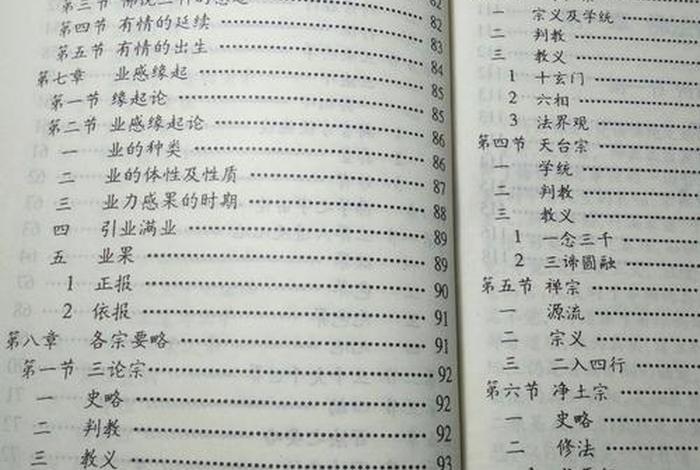 第三节 82
第四节 有情的延续 83
第五节 有情的出生 84
第七章 业感缘起 85
第一节 缘起论 85
第二节 业感缘起论 86
一 业的种类 86
二 业的体性及性质 87
三 业力感果的时期 88
四 引业满业 89
五 业果 89
1 正报 90
2 依报 91
第八章 各宗要略 91
第一节 三论宗 92
一 史略 92
二 判教 92
三 教义 93
一 宗义及学统
二 判教
三 教义
1 十玄门
2 六相
3 法界观
第四节 天台宗
一 学统
二 判教
三 教义
1 一念三千
2 三谛圆融
第五节 禅宗
一 源流
二 宗义
三 二入四行
第六节 净土宗
一 史略
二 修法